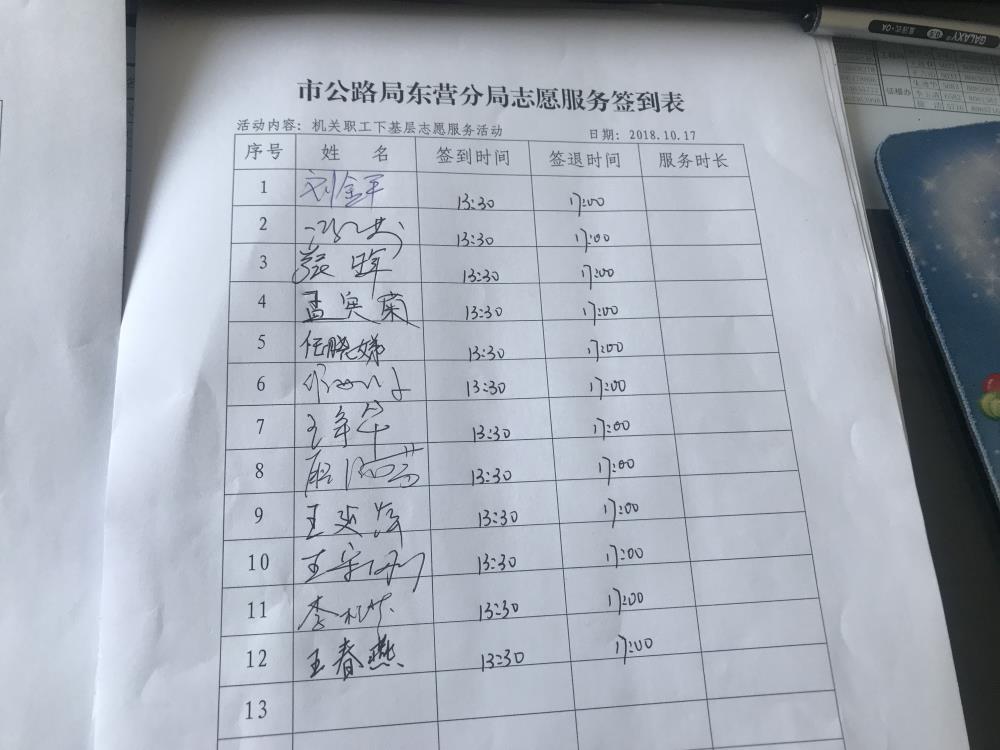 GALAXY 0.5
市公路局东营分局志愿服务签到表
活动内容：机关职工下基层志愿服务活动 日期：2018.10.17
序号 姓 名 签到时间 签退时间 服务时长
1 刘金平 13:30 17:00
2 13:30 17:00
3 张晖 13:30 17:00
4 孟寅菊 13:30 17:00
5 任晓娣 13:30 17:00
6 13:30 17:00
7 13:30 17:00
8 13:30 17:00
9 13:30 17:00
10 13:30 17:00
11 13:30 17:00
12 王春燕 13:30 17:00
13